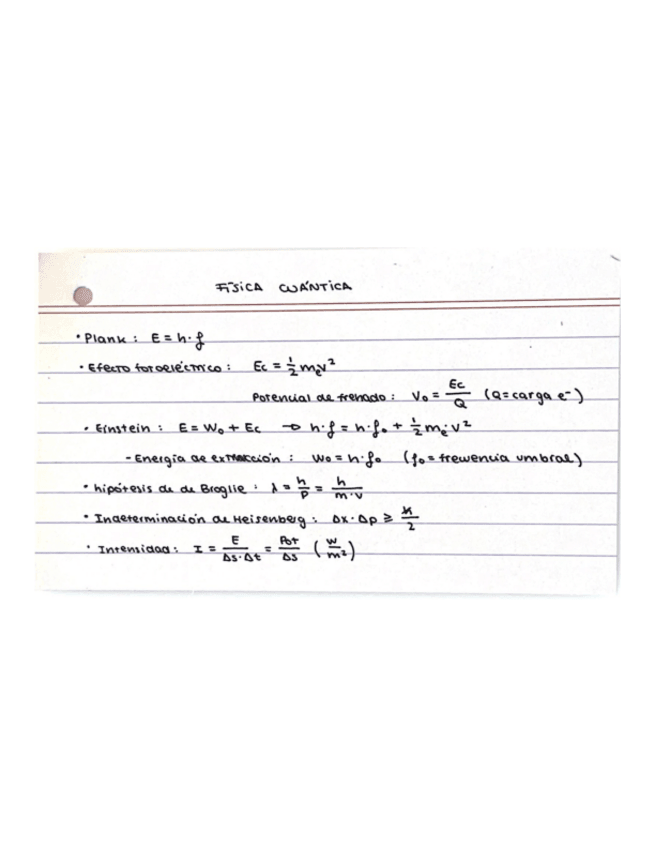 FÍSICA CUÁNTICA
• Plank : E = h · f
• Efecto fotoeléctrico : Ec = 1/2 mₑv²
Potencial de frenado : V₀ = Ec/Q (Q = carga e⁻)
• Einstein : E = W₀ + Ec → h · f = h · f₀ + 1/2 mₑ · v²
- Energía de extracción : W₀ = h · f₀ (f₀ = frecuencia umbral)
• hipótesis de de Broglie : λ = h/p = h/m·v
• Indeterminación de Heisenberg : Δx · Δp ≥ ħ/2
• Intensidad : I = E/Δs·Δt = Pot/Δs (W/m²)